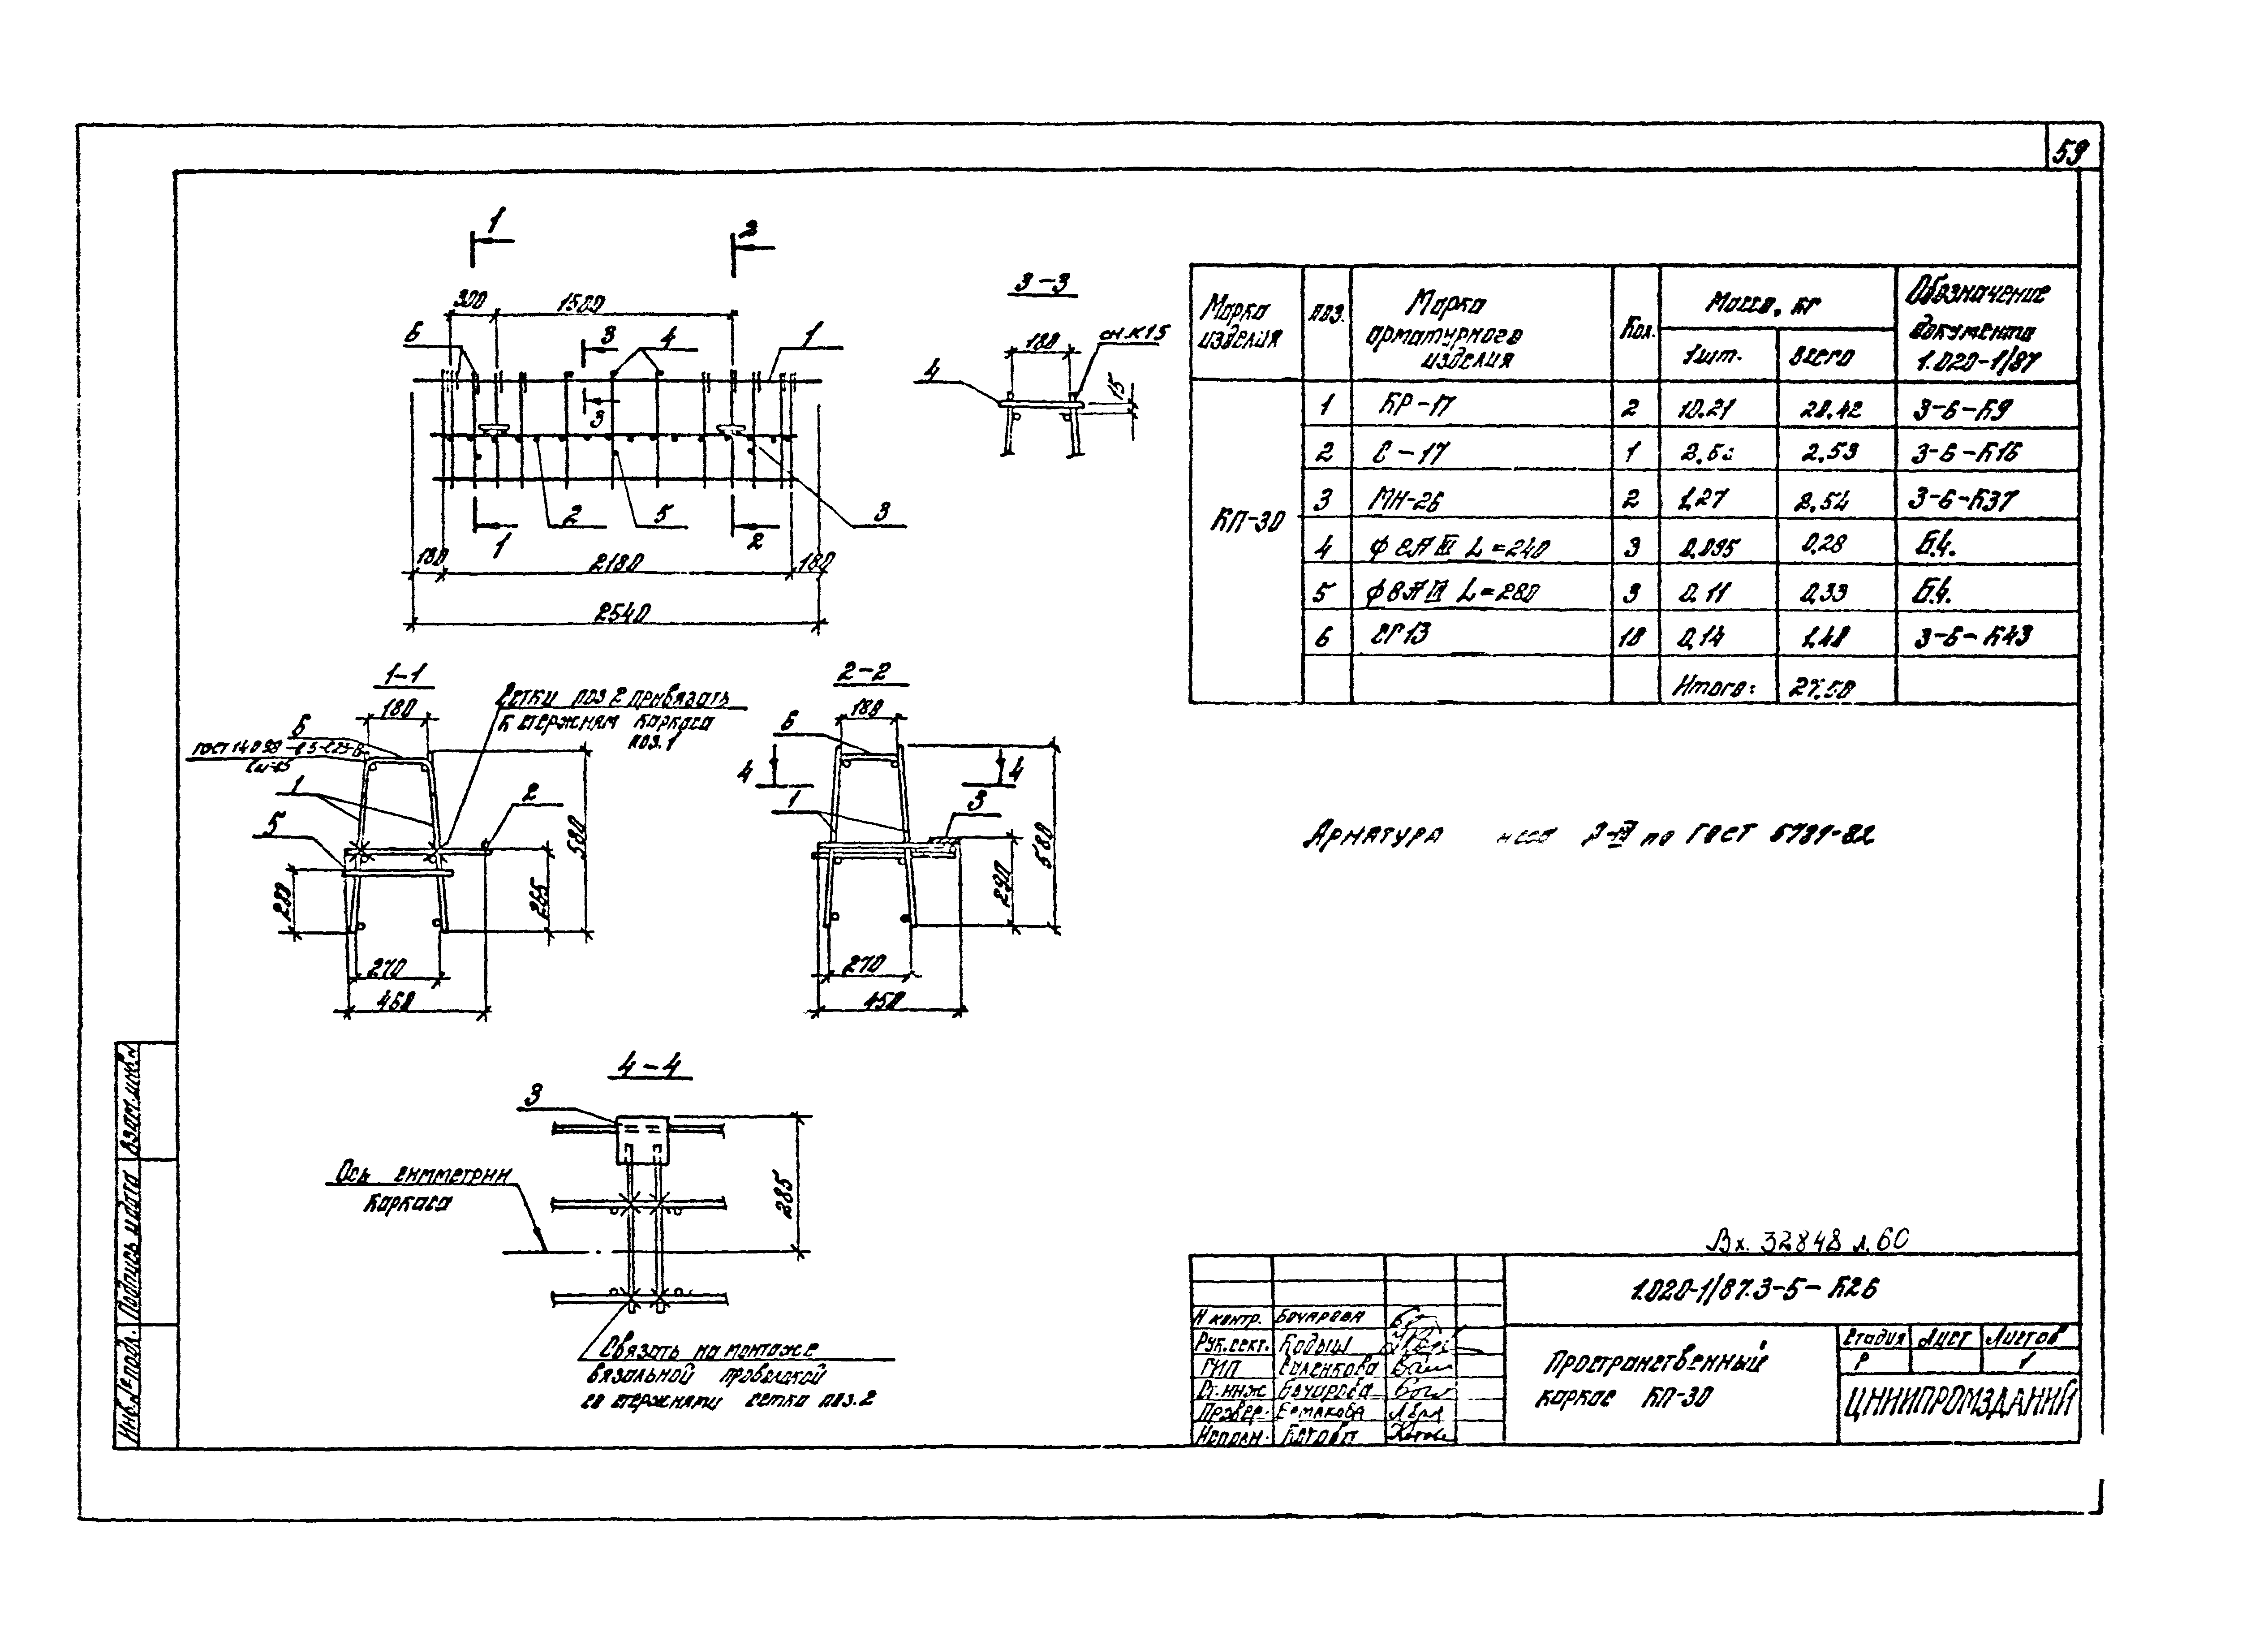 59
1
2
300
1500
6
3
4
1
3
2
5
3
1
2
180
2180
180
2540
3-3
180
4
15
1-1
180
6
Сетки поз 2 привязать
к стержням каркаса
поз.1
1
2
5
580
265
270
460
2-2
180
6
4
4
1
3
580
290
270
450
4-4
3
Ось симметрии
каркаса
285
Связать на монтаже
вязальной проволокой
со стержнями сетки поз.2
Марка изделия
поз.
Марка арматурного изделия
Кол.
Масса, кг
1шт.
Всего
Обозначение документа 1.020-1/87
КП-30
1 КР-17 2 10.21 20.42 3-6-К9
2 С-17 1 2.53 3-6-К16
3 МН-26 2 1,27 2.54 3-6-К37
4 ф8АIII L=240 3 0.095 0.28 Б.ч.
5 ф8АIII L=280 3 0.11 0,33 Б.ч.
6 СГ13 10 0,14 1,40 3-6-К43
Итого: 27.50
Арматура А-III по ГОСТ 5781-82
Вх. 32848 л.60
1.020-1/87.3-5-К26
Н контр. Бочарова
Рук.сект. Кодыш
ГИП
Ст.инж Бочарова
Провер. Ермакова
Исполн.
Пространственный
каркас КП-30
Стадия Лист Листов
Р 1
ЦНИИПРОМЗДАНИЙ
Инв.№ подл. Подпись и дата Взам.инв.№